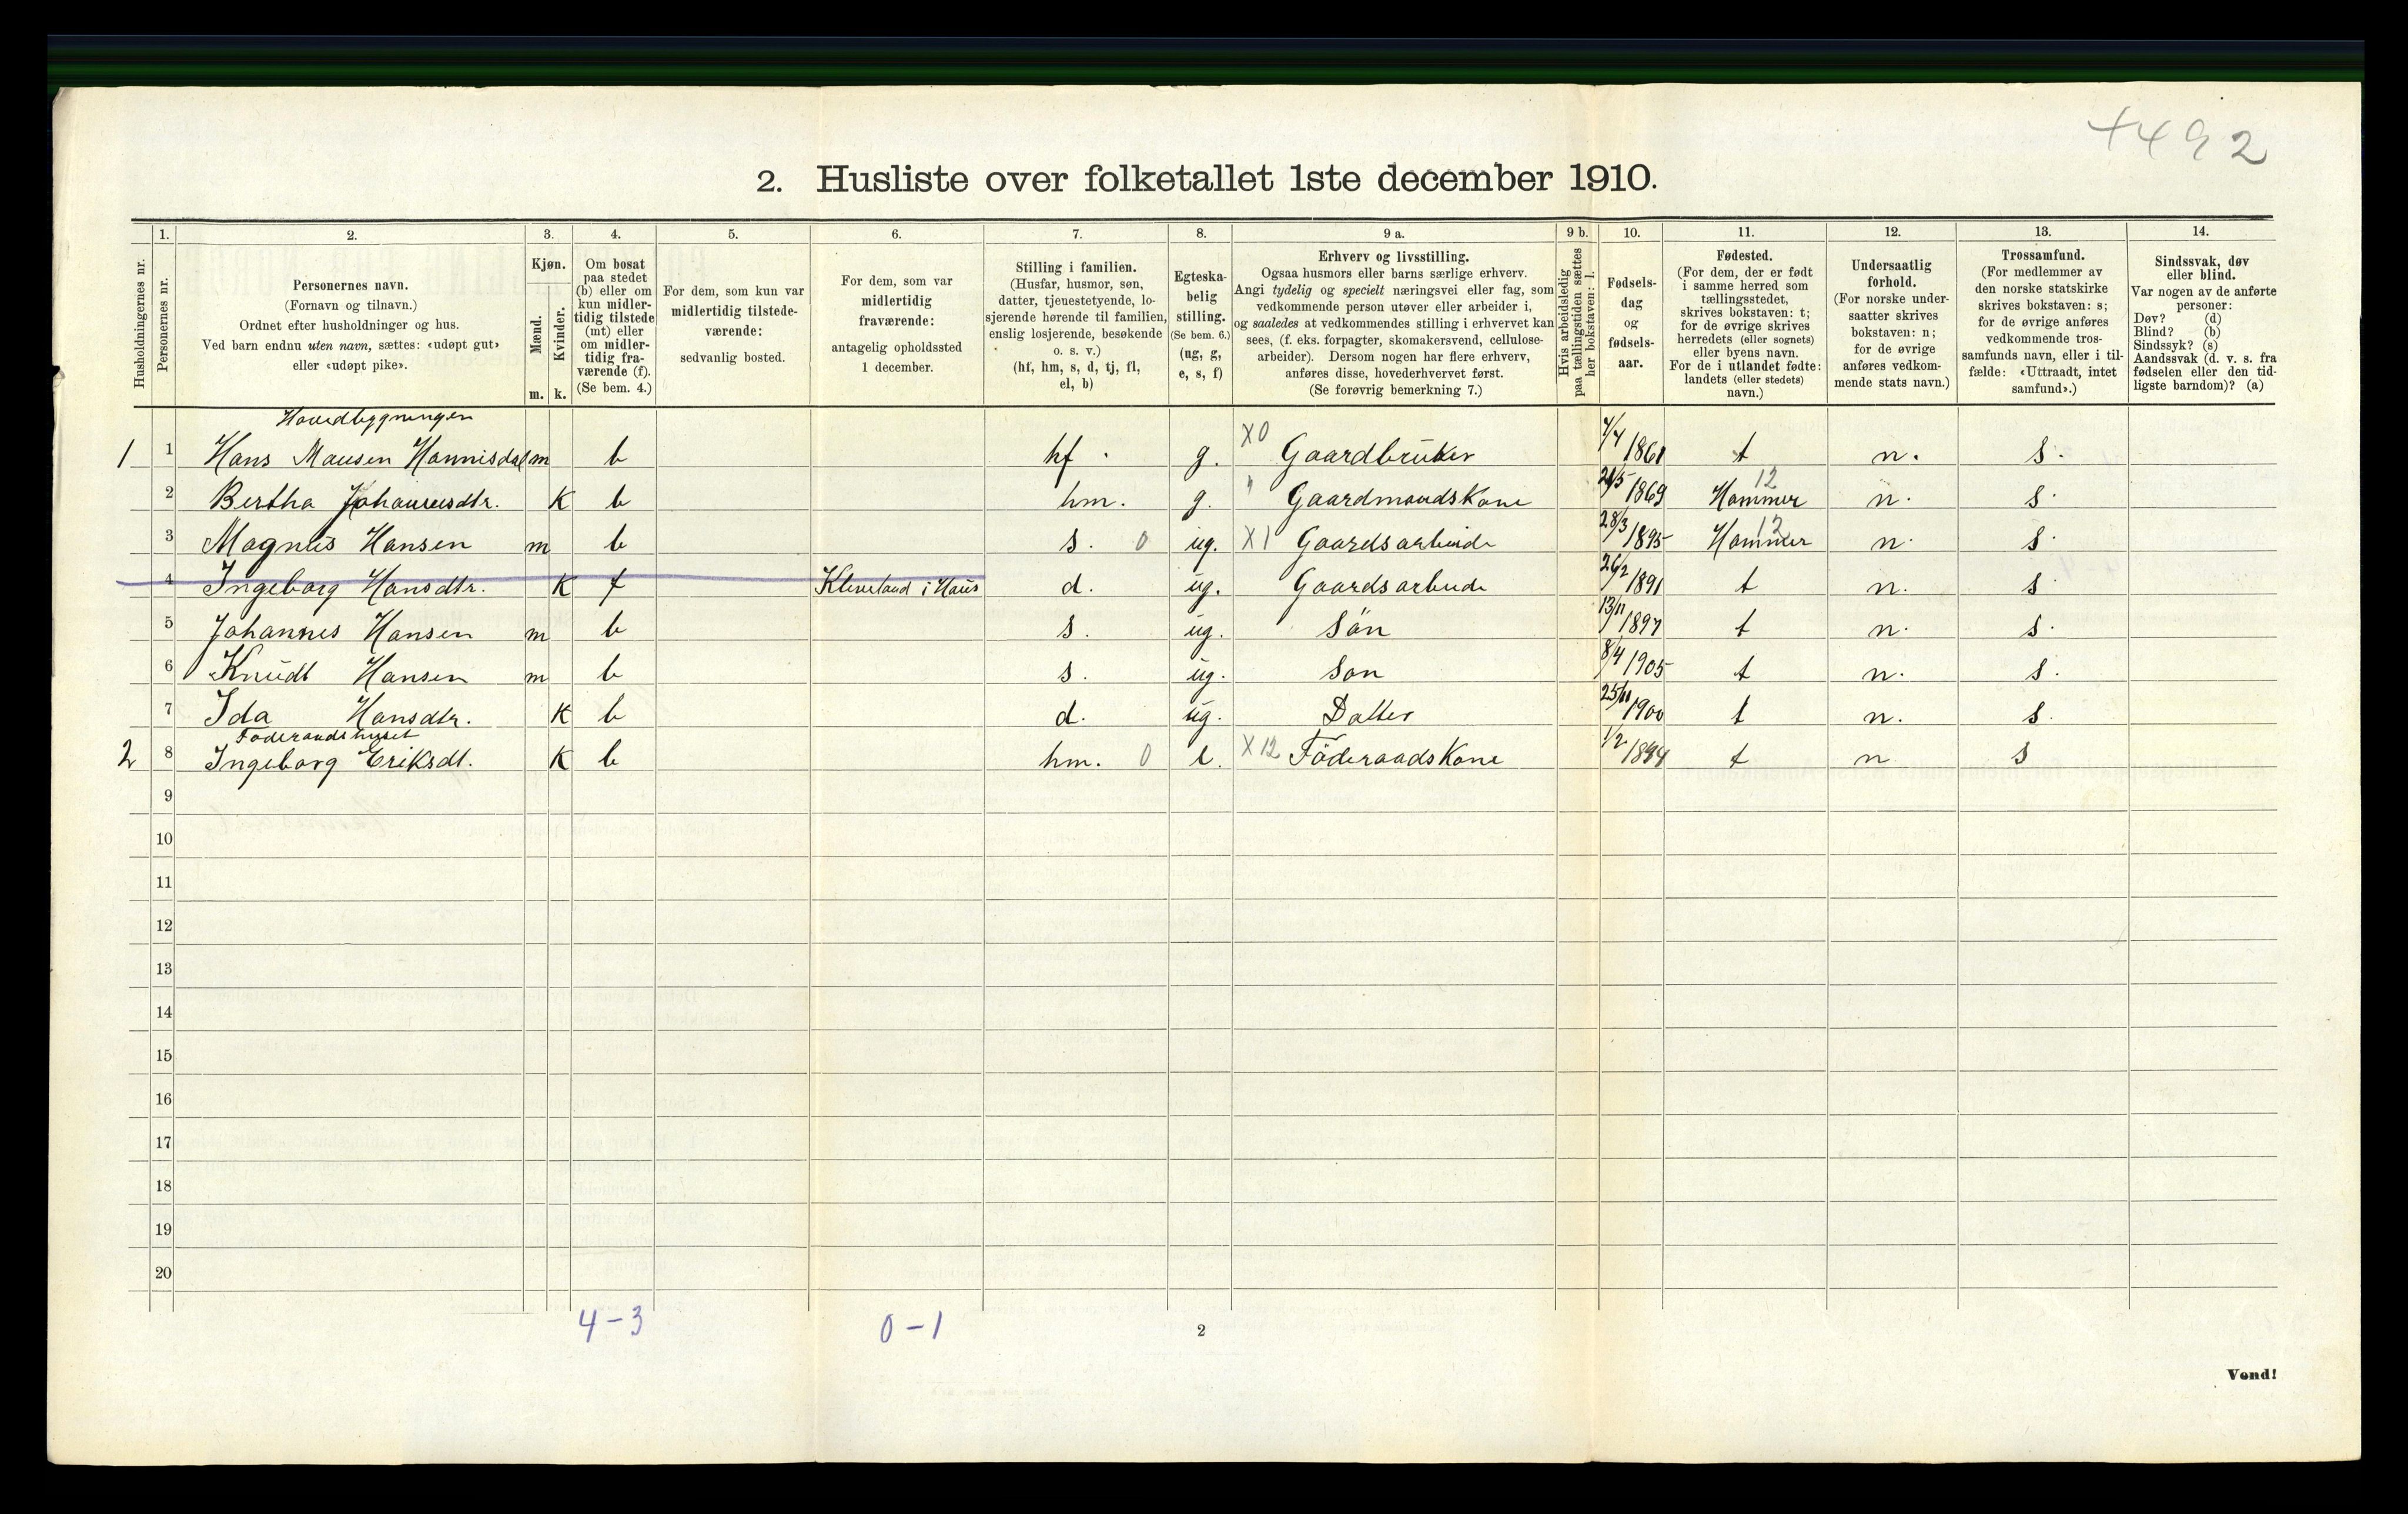 4492
2. Husliste over folketallet 1ste december 1910.
1. 2. 3. 4. 5. 6. 7. 8. 9 a. 9 b. 10. 11. 12. 13. 14.
Husholdningernes nr.
Personernes nr.
Personernes navn.
(Fornavn og tilnavn.)
Ordnet efter husholdninger og hus.
Ved barn endnu uten navn, sættes: «udøpt gut»
eller «udøpt pike».
Kjøn.
Mænd.
Kvinder.
m. k.
Om bosat
paa stedet
(b) eller om
kun midler-
tidig tilstede
(mt) eller
om midler-
tidig fra-
værende (f).
(Se bem. 4.)
For dem, som kun var
midlertidig tilstede-
værende:
sedvanlig bosted.
For dem, som var
midlertidig
fraværende:
antagelig opholdssted
1 december.
Stilling i familien.
(Husfar, husmor, søn,
datter, tjenestetyende, lo-
sjerende hørende til familien,
enslig losjerende, besøkende
o. s. v.)
(hf, hm, s, d, tj, fl,
el, b)
Egteska-
belig
stilling.
(Se bem. 6.)
(ug, g,
e, s, f)
Erhverv og livsstilling.
Ogsaa husmors eller barns særlige erhverv.
Angi tydelig og specielt næringsvei eller fag, som
vedkommende person utøver eller arbeider i,
og saaledes at vedkommendes stilling i erhvervet kan
sees, (f. eks. forpagter, skomakersvend, cellulose-
arbeider). Dersom nogen har flere erhverv,
anføres disse, hovederhvervet først.
(Se forøvrig bemerkning 7.)
Hvis arbeidsledig
paa tællingstiden sættes
her bokstaven: l.
Fødsels-
dag
og
fødsels-
aar.
Fødested.
(For dem, der er født
i samme herred som
tællingsstedet,
skrives bokstaven: t;
for de øvrige skrives
herredets (eller sognets)
eller byens navn.
For de i utlandet fødte:
landets (eller stedets)
navn.)
Undersaatlig
forhold.
(For norske under-
saatter skrives
bokstaven: n;
for de øvrige
anføres vedkom-
mende stats navn.)
Trossamfund.
(For medlemmer av
den norske statskirke
skrives bokstaven: s;
for de øvrige anføres
vedkommende tros-
samfunds navn, eller i til-
fælde: «Uttraadt, intet
samfund».)
Sindssvak, døv
eller blind.
Var nogen av de anførte
personer:
Døv? (d)
Blind? (b)
Sindssyk? (s)
Aandssvak (d. v. s. fra
fødselen eller den tid-
ligste barndom)? (a)
Hovedbygningen
1 1 Hans Hannisdal m b hf g. X0 Gaardbruker t n. s.
2 Bertha Johannesdtr. K b hm. g. " Gaardmandskone 1869 Hammer 12 n. s.
3 Magnus Hansen m b s. 0 ug. X1 Gaardsarbeide 28/3 1895 Hammer 12 n. s.
4 Ingeborg Hansdtr. K f Kleveland i Haus d. ug. Gaardsarbeide 1891 t n. s
5 Johannes Hansen m b s. ug. Sön 13/11 1897 t n. s.
6 Knudt Hansen m b s. ug. Son 8/4 1905 t n. s.
7 Ida Hansdtr. K b d. ug. Datter 1900 t n. s.
Föderaadshuset
2 8 Ingeborg Eriksdt. K b hm. 0 e. X12 Föderaadskone 1/2 t n s
9
10
11
12
13
14
15
16
17
18
19
20
4-3 0-1
2
Vend!